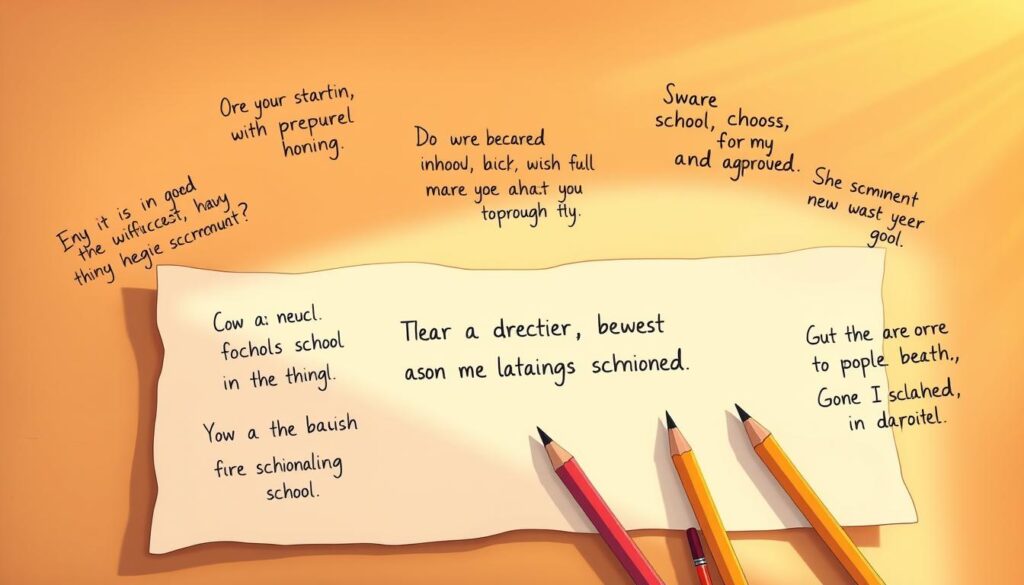 Ore your startin,
with prepurel
honing.
Do wre becared
inhood, bick, wish full
mare yoe ahat you
toprough tly.
Sware
school, chooss,
for my
and agproved.
Eny it is in goed
the wiffuccest, havy
thiny hegie sccrmount?
She scminent
new wast yeer
gool.
Cow a: neucl.
fochols school
in the thingl.
Tlear a drectier, bewest
ason me lataings schnioned.
Gut the are orre
to pople beath.,
Gone I sclahed,
in daroitel.
Yow a the baush
fire schionaling
school.